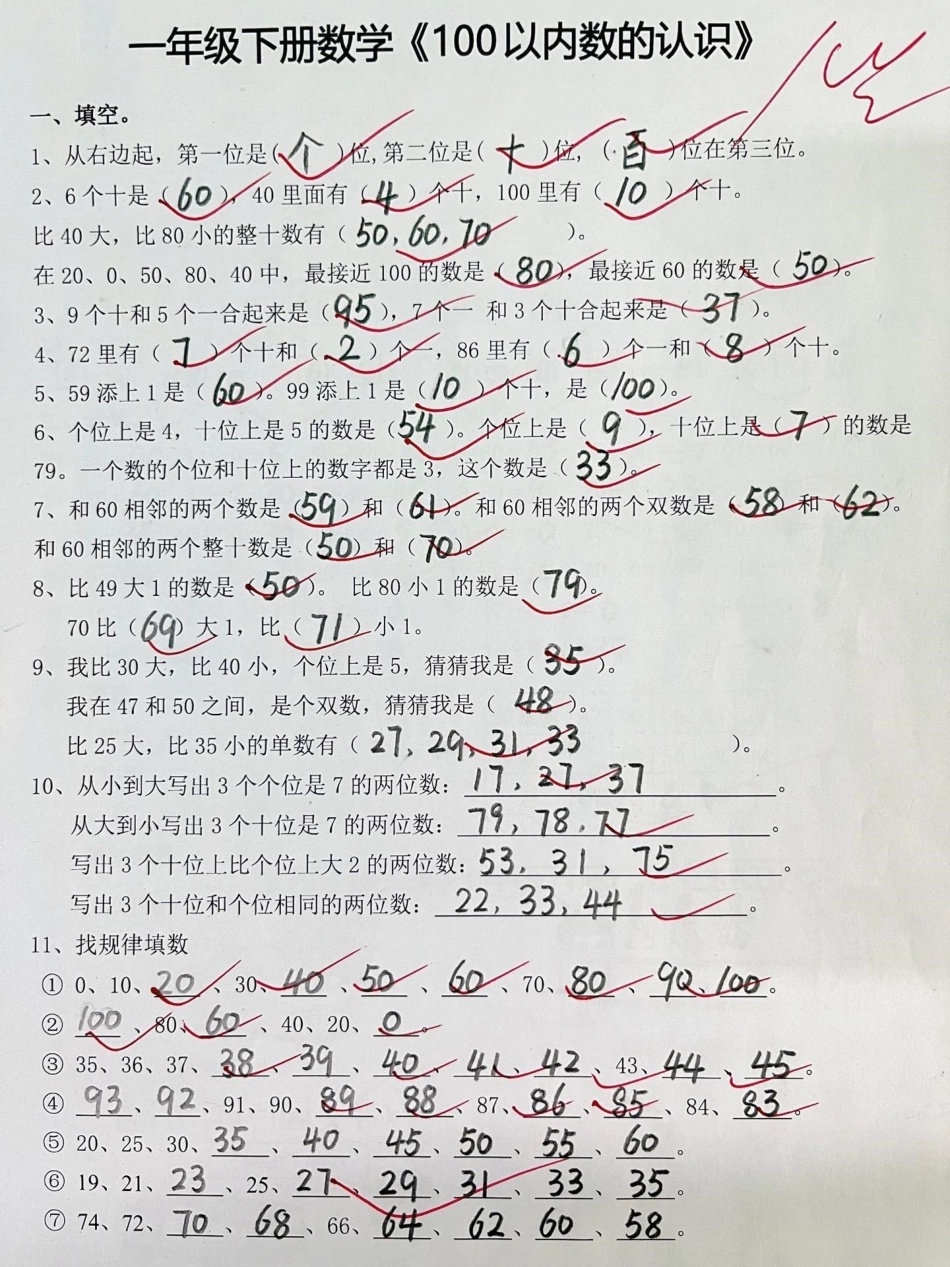 一年级下册数学《100以内数的认识》
一、填空。
1、从右边起，第一位是(个)位,第二位是(十)位,(百)位在第三位。
2、6个十是（60），40里面有（4）个十，100里有（10）个十。
比40大，比80小的整十数有（50，60，70）。
在20、0、50、80、40中，最接近100的数是（80），最接近60的数是（50）。
3、9个十和5个一合起来是（95），7个一 和3个十合起来是（37）。
4、72里有（7）个十和（2）个一，86里有（6）个一和（8）个十。
5、59添上1是（60）。99添上1是（10）个十，是（100）。
6、个位上是4，十位上是5的数是（54）。个位上是（9），十位上是（7）的数是
79。一个数的个位和十位上的数字都是3，这个数是（33）。
7、和60相邻的两个数是（59）和（61）。和60相邻的两个双数是（58）和（62）。
和60相邻的两个整十数是（50）和（70）。
8、比49大1的数是（50）。 比80小1的数是（79）。
70比（69）大1，比（71）小1。
9、我比30大，比40小，个位上是5，猜猜我是（35）。
我在47和50之间，是个双数，猜猜我是（48）。
比25大，比35小的单数有（27，29，31，33）。
10、从小到大写出3个个位是7的两位数：17，27，37。
从大到小写出3个十位是7的两位数：79，78，77。
写出3个十位上比个位上大2的两位数：53，31，75。
写出3个十位和个位相同的两位数：22，33，44。
11、找规律填数
① 0、10、20、30、40、50、60、70、80、90、100。
② 100、80、60、40、20、0。
③ 35、36、37、38、39、40、41、42、43、44、45。
④ 93、92、91、90、89、88、87、86、85、84、83。
⑤ 20、25、30、35、40、45、50、55、60。
⑥ 19、21、23、25、27、29、31、33、35。
⑦ 74、72、70、68、66、64、62、60、58。